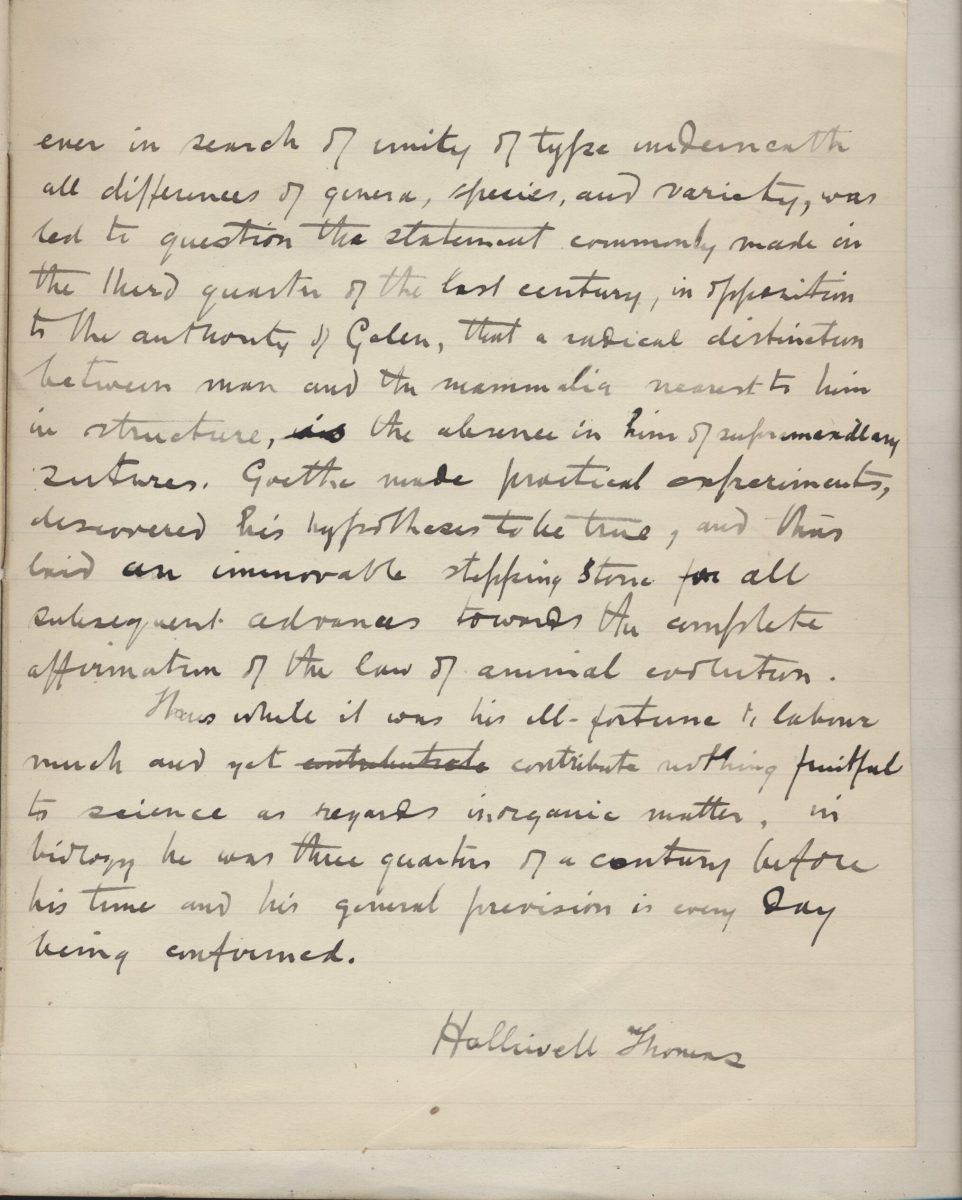 ever in search of unity of type underneath
all differences of genera, species, and variety, was
led to question the statement commonly made in
the third quarter of the last century, in opposition
to the authority of Galen, that a radical distinction
between man and the mammalia nearest to him
in structure, is the absence in him of supramaxillary
sutures. Goethe made practical experiments,
discovered his hypotheses to be true, and thus
laid an immovable stepping stone for all
subsequent advances towards the complete
affirmation of the law of animal evolution.
Thus while it was his ill-fortune to labour
much and yet contribute nothing fruitful
to science as regards inorganic matter, in
biology he was three quarters of a century before
his time and his general prevision is every day
being confirmed.
Halliwell Thomas